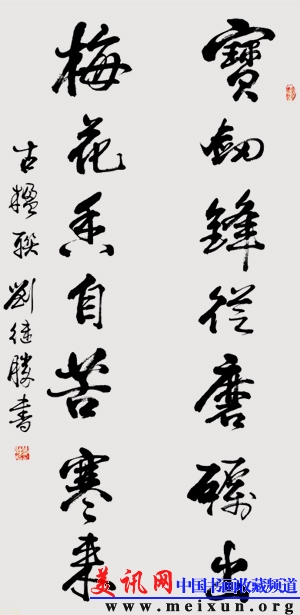 寶劍鋒從磨礪出
梅花香自苦寒来
古楹联 劉继勝書
美讯网
中国书画收藏频道
www.meixun.org